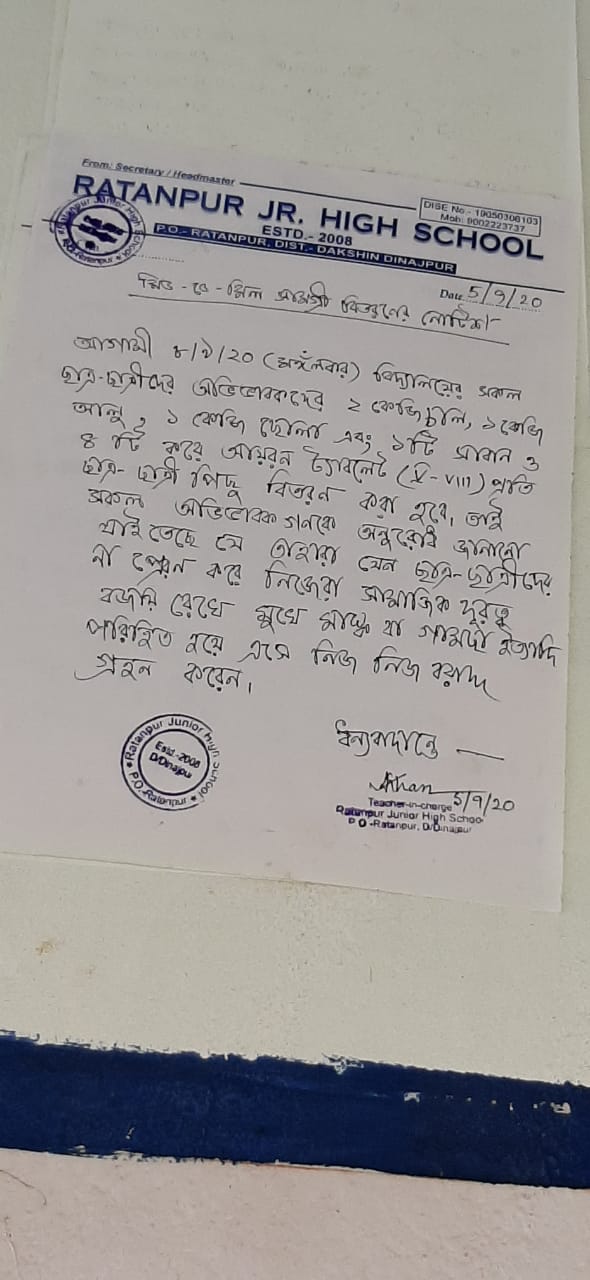 From: Secretary / Headmaster
RATANPUR JR. HIGH SCHOOL
DISE No.- 19050306103
Mob: 9002223737
ESTD.- 2008
P.O.- RATANPUR, DIST.- DAKSHIN DINAJPUR
Date 5/9/20
মিড-ডে-মিল সামগ্রী বিতরণের নোটিশ।-
আগামী ৮/৯/২০ (মঙ্গলবার) বিদ্যালয়ের সকল
ছাত্র-ছাত্রীদের অভিভাবকদের ২ কেজি চাল, ১ কেজি
আলু, ১ কেজি ছোলা এবং ১টি সাবান ও
৪ টি করে আয়রন ট্যাবলেট (V-VIII) প্রতি
ছাত্র-ছাত্রী পিছু বিতরন করা হবে, তাই
সকল অভিভাবক গনকে অনুরোধ জানানো
যাইতেছে যে তাহারা যেন ছাত্র-ছাত্রীদের
না প্রেরন করে নিজেরা সামাজিক দূরত্ব
বজায় রেখে মুখে মাস্ক বা গামছা ইত্যাদি
পরিহিত হয়ে এসে নিজ নিজ বরাদ্দ
গ্রহন করেন।
ধন্যবাদান্তে —
5/9/20
Teacher-in-charge
Ratanpur Junior High School
P.O-Ratanpur, D/Dinajpur
Ratanpur Junior High School
Estd.-2008
D/Dinajpur
P.O.-Ratanpur